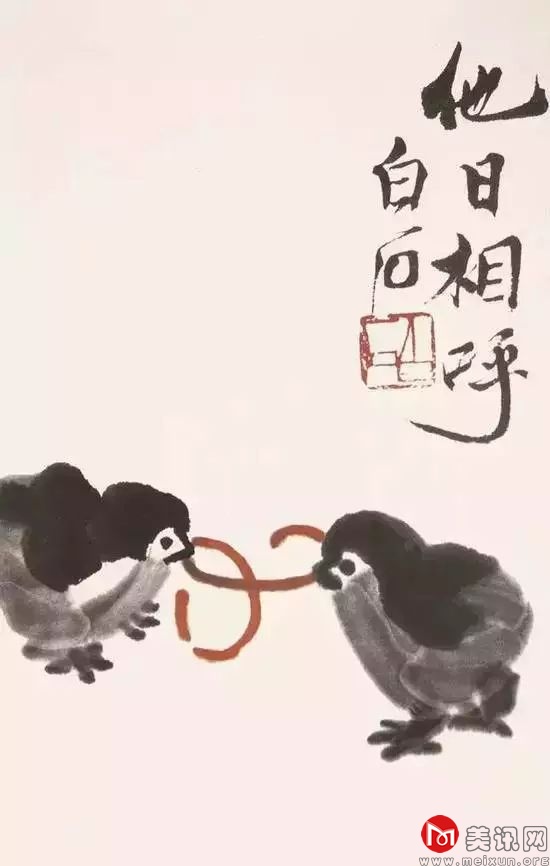 他日相呼
白石
美讯网
www.meixun.org